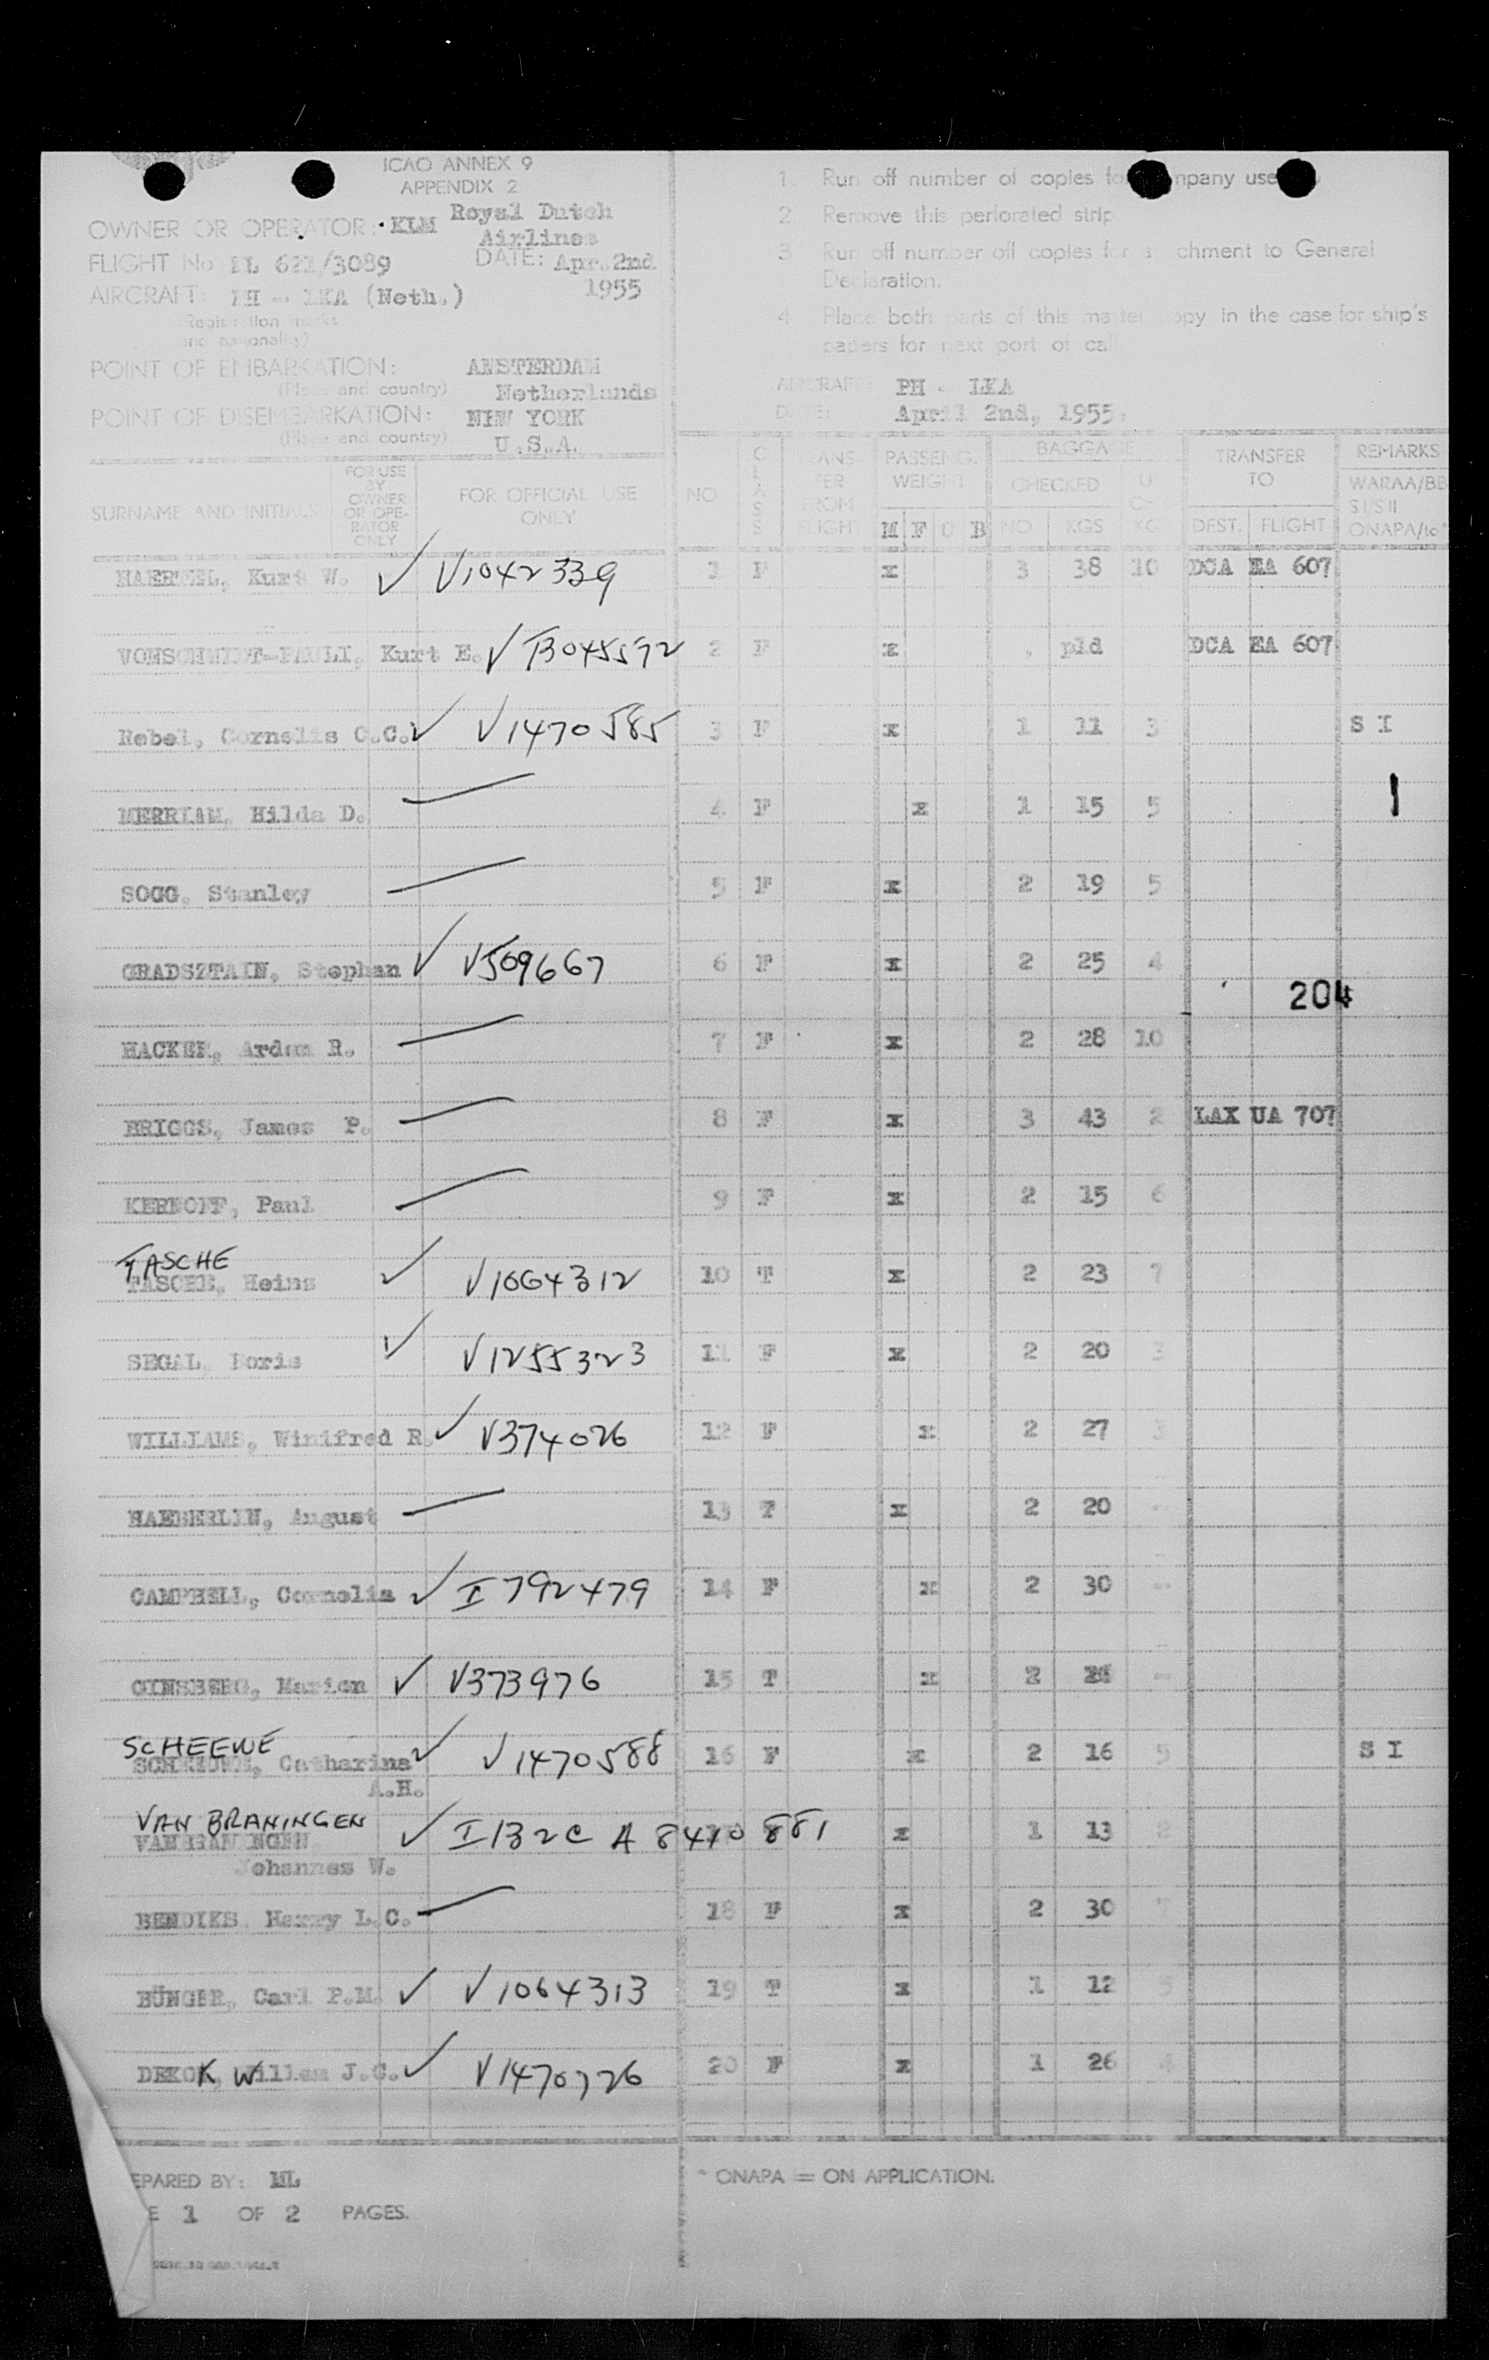 ICAO ANNEX 9
APPENDIX 2
OWNER OR OPERATOR: KLM Royal Dutch
Airlines
FLIGHT No KL 621/3089 DATE: Apr. 2nd
1955
AIRCRAFT: PH - LKA (Neth.)
(Registration marks
and nationality)
POINT OF EMBARKATION: AMSTERDAM
(Place and country) Netherlands
POINT OF DISEMBARKATION: NEW YORK
(Place and country) U.S.A.
1. Run off number of copies for company use
2. Remove this perforated strip
3. Run off number off copies for chment to General
Declaration.
4. Place both parts of this master copy in the case for ship's
papers for next port of call
AIRCRAFT: PH - LKA
DATE: April 2nd, 1955.
SURNAME AND INITIALS FOR USE BY OWNER OR OPE-RATOR ONLY FOR OFFICIAL USE ONLY NO CLASS TRANS-FER FROM FLIGHT PASSENG. WEIGHT M F C B BAGGAGE CHECKED NO. KGS TRANSFER TO DEST. FLIGHT REMARKS WARAA/BB SI/SII ONAPA/to
HAERTEL, Kurt W. ✓ V1042339 1 F x 3 38 10 DCA EA 607
VOMSCHMIDT-PAULI, Kurt E. ✓ B045572 2 F x pld DCA EA 607
Rebel, Cornelis C.C. ✓ V1470585 3 F x 1 11 3 S I
MERRIAM, Hilda D. — 4 F x 1 15 5
SOGG, Stanley — 5 F x 2 19 5
GRADSZTAIN, Stephan ✓ V509667 6 F x 2 25 4
204
HACKER, Arden R. — 7 F x 2 28 10
BRIGGS, James P. — 8 F x 3 43 2 LAX UA 707
KERNOFF, Paul — 9 F x 2 15 6
TASCHE
TASCHE, Heinz ✓ V1064312 10 T x 2 23 7
SEGAL, Boris ✓ V1255323 11 F x 2 20 3
WILLIAMS, Winifred R. ✓ V374026 12 F x 2 27 3
HAEBERLIN, August — 13 T x 2 20 -
CAMPBELL, Cornelia ✓ I792479 14 F x 2 30 -
GINSBERG, Marion ✓ V373976 15 T x 2 -
SCHEEWE
Catharina ✓ V1470588 16 F x 2 16 5 S I
A.H.
VAN BRANINGEN
✓ I132C A8410881 x 1 13 2
Johannes W.
BENDIKS, Harry L.C. — 18 F x 2 30
BÜNGER, Carl P.M. ✓ V1064313 19 T x 1 12
DEKOK, Willem J.C. ✓ V1470726 20 F x 1 26 4
EPARED BY: ML
E 1 OF 2 PAGES.
* ONAPA = ON APPLICATION.